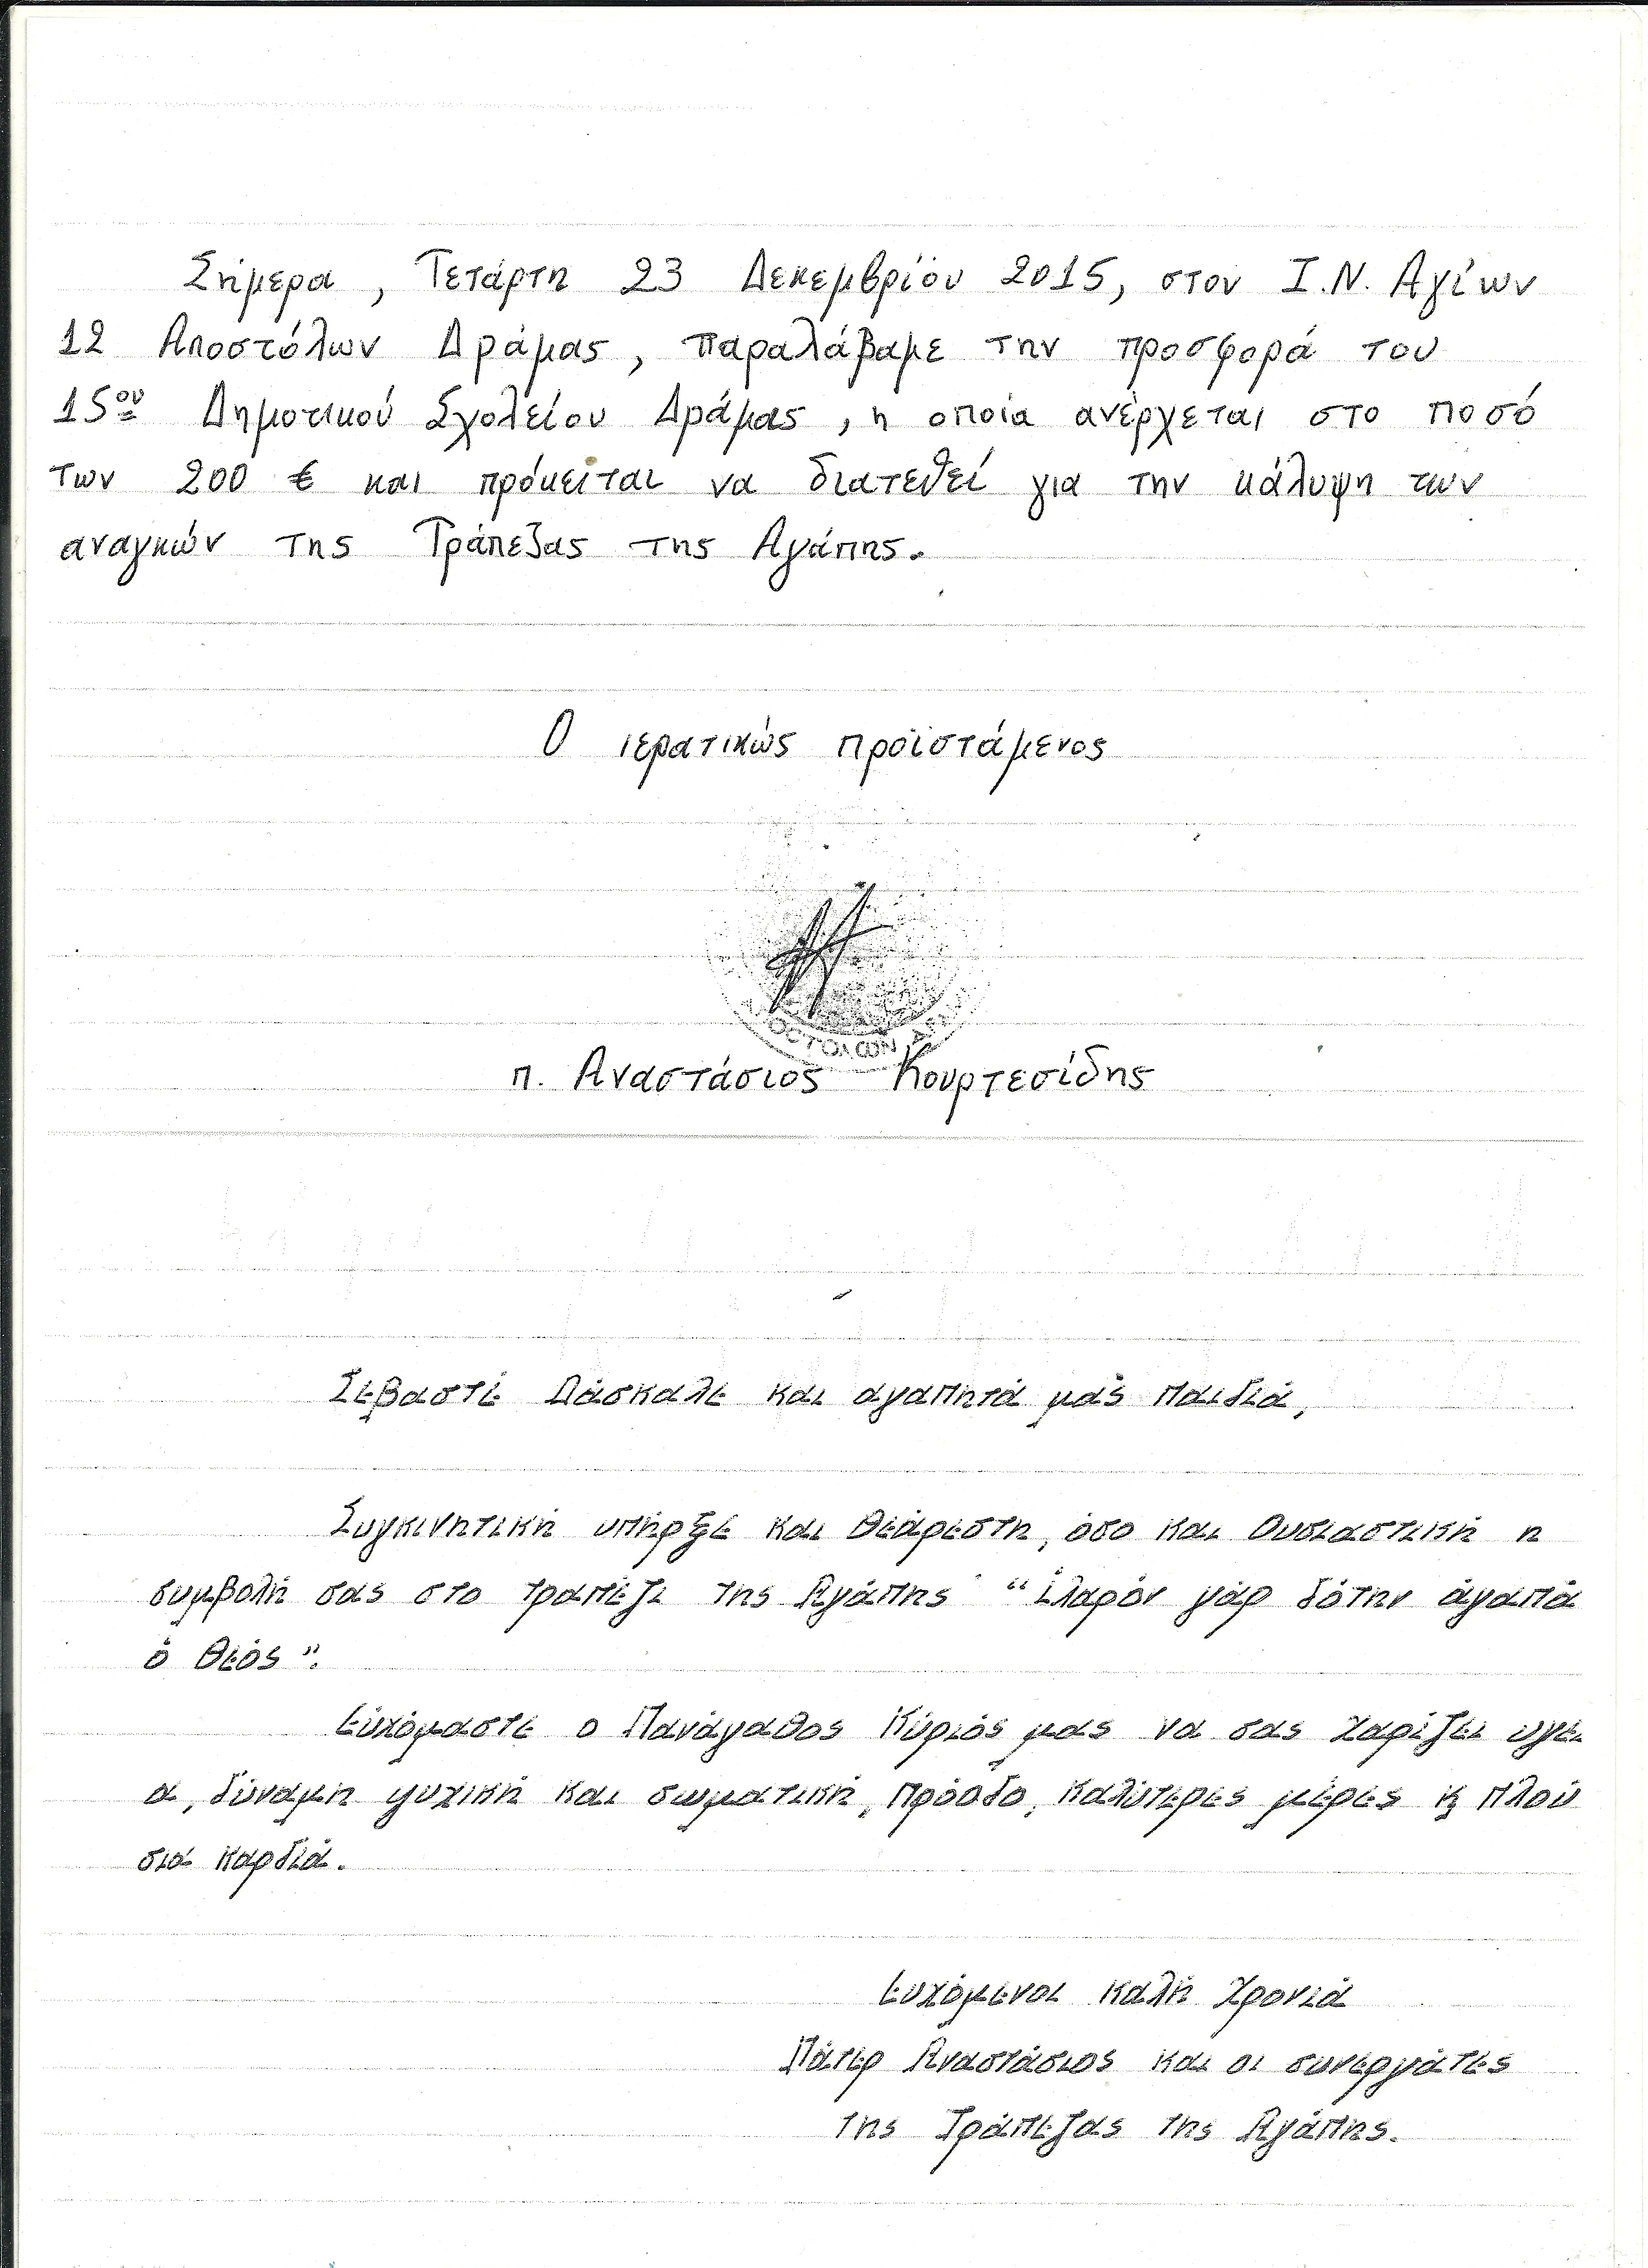 Σήμερα, Τετάρτη 23 Δεκεμβρίου 2015, στον Ι.Ν. Αγίων
12 Αποστόλων Δράμας, παραλάβαμε την προσφορά του
15ου Δημοτικού Σχολείου Δράμας, η οποία ανέρχεται στο ποσό
των 200 € και πρόκειται να διατεθεί για την κάλυψη των
αναγκών της Τράπεζας της Αγάπης.
Ο ιερατικώς προϊστάμενος
ΟΣΤΟΛΩΝ
π. Αναστάσιος Κουρτεσίδης
Σεβαστέ Δάσκαλε και αγαπητά μας παιδιά,
Συγκινητική υπήρξε και θεάρεστη, όσο και Ουσιαστική η
συμβολή σας στο τραπέζι της Αγάπης "ἱλαρόν γάρ δότην ἀγαπά
ὁ Θεός".
Ευχόμαστε ο Πανάγαθος Κύριός μας να σας χαρίζει υγεί
α, δύναμη ψυχική και σωματική, πρόοδο, καλύτερες μέρες κ πλού
σια καρδιά.
Ευχόμενοι καλή χρονιά
Πάτερ Αναστάσιος και οι συνεργάτες
της Τράπεζας της Αγάπης.